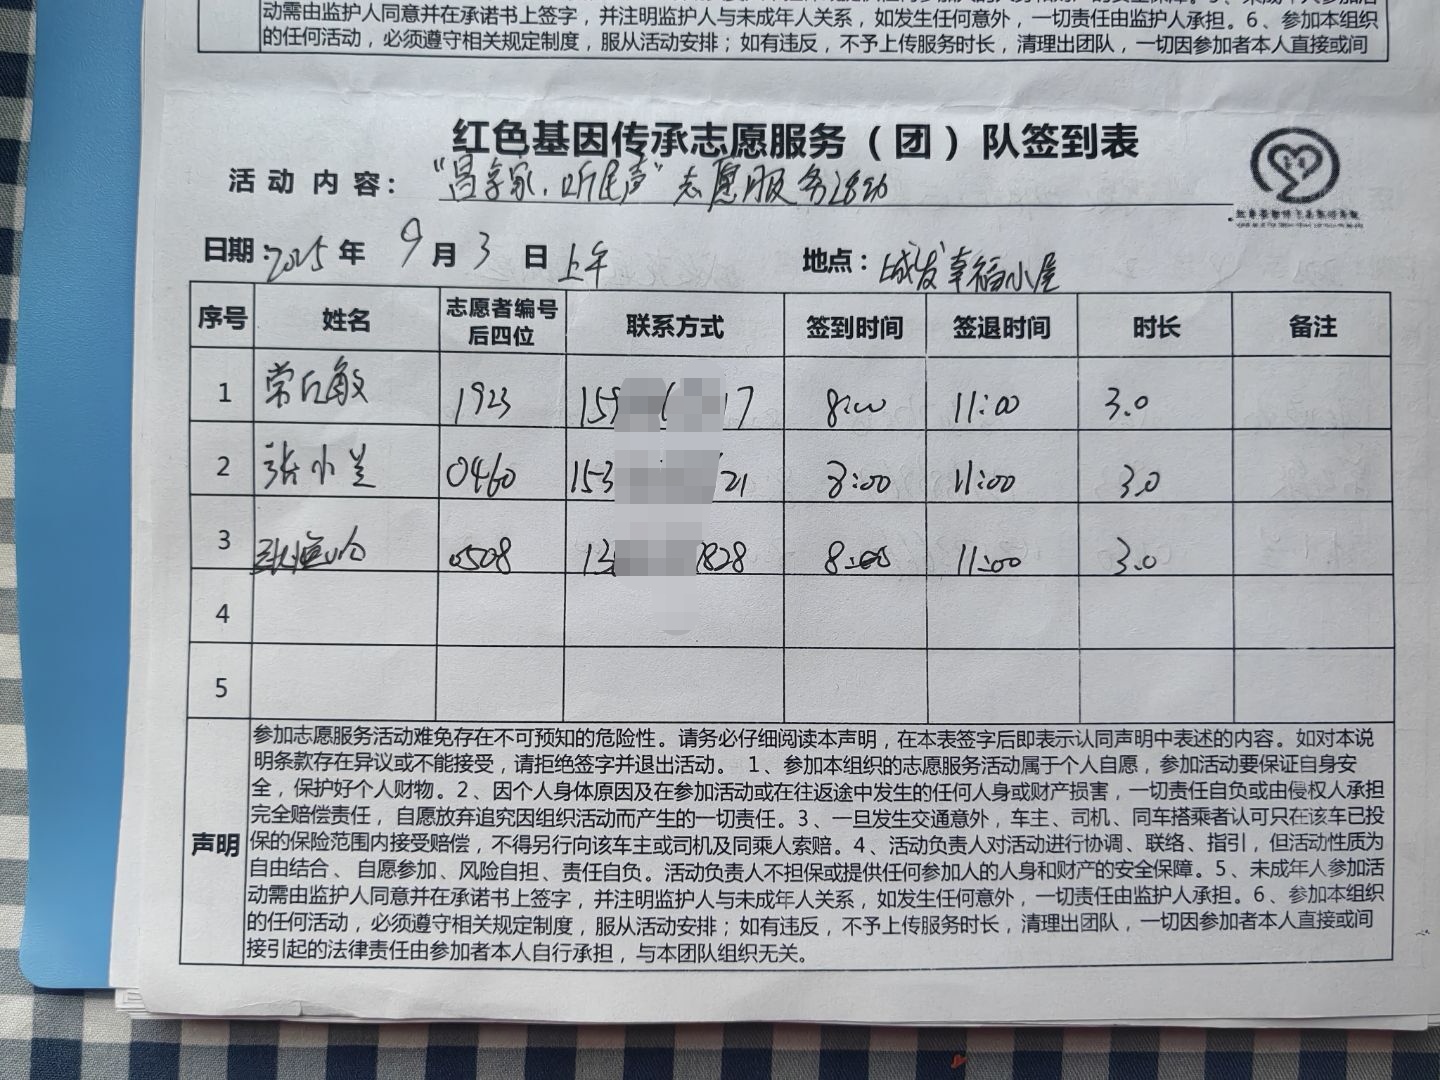 动需由监护人同意并在承诺书上签字，并注明监护人与未成年人关系，如发生任何意外，一切责任由监护人承担。6、参加本组织
的任何活动，必须遵守相关规定制度，服从活动安排；如有违反，不予上传服务时长，清理出团队，一切因参加者本人直接或间
红色基因传承志愿服务（团）队签到表
活动内容：“昌享家.听民声”志愿服务活动
日期：2025年9月3日上午 地点：城发幸福小屋
序号 姓名 志愿者编号后四位 联系方式 签到时间 签退时间 时长 备注
1 常丘敏 1923 159 17 8:00 11:00 3.0
2 张小兰 0460 153 21 8:00 11:00 3.0
3 0508 13 828 8:00 11:00 3.0
4
5
声明
参加志愿服务活动难免存在不可预知的危险性。请务必仔细阅读本声明，在本表签字后即表示认同声明中表述的内容。如对本说
明条款存在异议或不能接受，请拒绝签字并退出活动。 1、参加本组织的志愿服务活动属于个人自愿，参加活动要保证自身安
全，保护好个人财物。2、因个人身体原因及在参加活动或在往返途中发生的任何人身或财产损害，一切责任自负或由侵权人承担
完全赔偿责任，自愿放弃追究因组织活动而产生的一切责任。3、一旦发生交通意外，车主、司机、同车搭乘者认可只在该车已投
保的保险范围内接受赔偿，不得另行向该车主或司机及同乘人索赔。4、活动负责人对活动进行协调、联络、指引，但活动性质为
自由结合、自愿参加、风险自担、责任自负。活动负责人不担保或提供任何参加人的人身和财产的安全保障。5、未成年人参加活
动需由监护人同意并在承诺书上签字，并注明监护人与未成年人关系，如发生任何意外，一切责任由监护人承担。6、参加本组织
的任何活动，必须遵守相关规定制度，服从活动安排；如有违反，不予上传服务时长，清理出团队，一切因参加者本人直接或间
接引起的法律责任由参加者本人自行承担，与本团队组织无关。